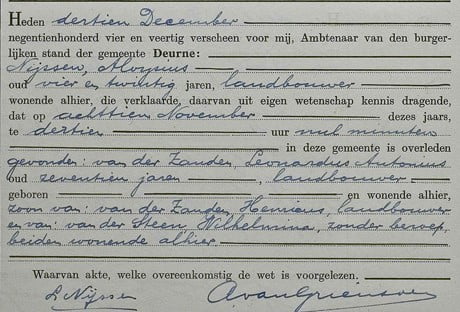 Heden dertien December
negentienhonderd vier en veertig verscheen voor mij, Ambtenaar van den burger-
lijken stand der gemeente Deurne:
Nijssen, Aloysius
oud vier en twintig jaren, landbouwer
wonende alhier, die verklaarde, daarvan uit eigen wetenschap kennis dragende,
dat op achttien November dezes jaars,
te dertien uur nul minuten
in deze gemeente is overleden
gevonden: van der Zanden, Leonardus Antonius
oud zeventien jaren, landbouwer
geboren en wonende alhier,
zoon van: van der Zanden, Henricus, landbouwer
en van: van der Steen, Wilhelmina, zonder beroep,
beiden wonende alhier
Waarvan akte, welke overeenkomstig de wet is voorgelezen.
L. Nijssen AvanGriensven